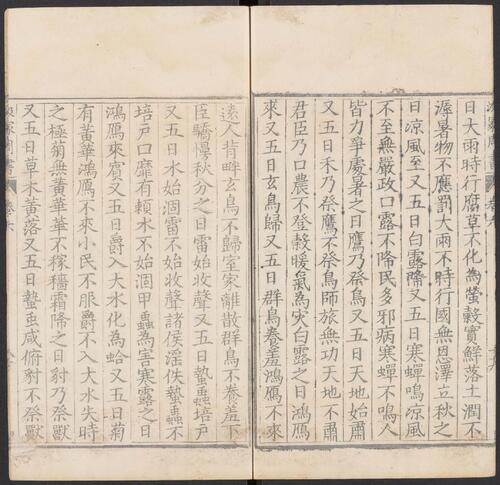 日大雨時行腐草不化為螢穀實鮮落土潤不
溽暑物不應罰大雨不時行國無恩澤立秋之
日凉風至又五日白露降又五日寒蟬鳴凉風
不至無嚴政口露不降民多邪病寒蟬不鳴人
皆力爭處暑之日鷹乃祭鳥又五日天地始肅
又五日禾乃登鷹不祭鳥師旅無功天地不肅
君臣乃口農不登穀暖氣為灾白露之日鴻鴈
來又五日玄鳥歸又五日群鳥養羞鴻鴈不來
遠人背畔玄鳥不歸室家離散群鳥不養羞下
臣驕慢秋分之日雷始收聲又五日蟄蟲培戶
又五日水始涸雷不始收聲諸侯淫佚蟄蟲不
培戶口靡有賴水不始涸甲蟲為害寒露之日
鴻鴈來賓又五日爵入大水化為蛤又五日菊
有黃華鴻鴈不來小民不服爵不入大水失時
之極菊無黃華華不稼穡霜降之日豺乃祭獸
又五日草木黃落又五日蟄虫咸俯豺不祭獸